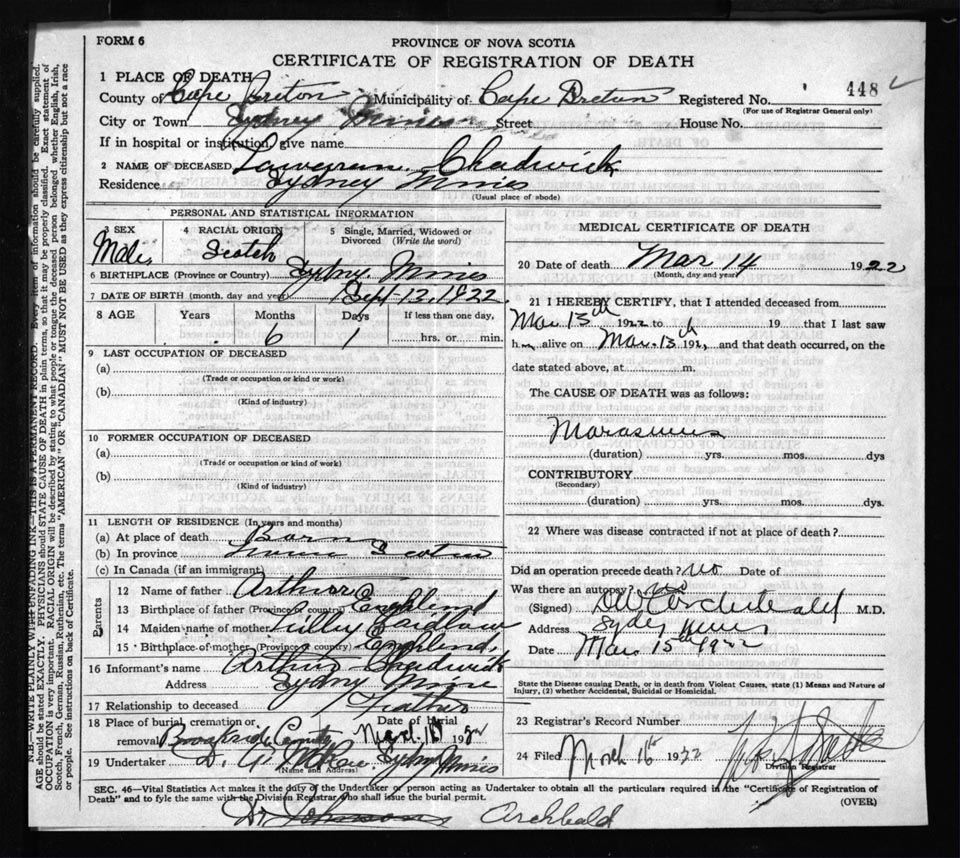 FORM 6
PROVINCE OF NOVA SCOTIA
CERTIFICATE OF REGISTRATION OF DEATH
448
1 PLACE OF DEATH
County of Cape Breton Municipality of Cape Breton Registered No.
(For use of Registrar General only)
City or Town Sydney Mines Street House No.
If in hospital or institution, give name
2 NAME OF DECEASED Chadwick
Residence Sydney Mines
(Usual place of abode)
PERSONAL AND STATISTICAL INFORMATION
3 SEX 4 RACIAL ORIGIN 5 Single, Married, Widowed or
Divorced (Write the word)
Male Scotch
6 BIRTHPLACE (Province or Country) Sydney Mines
7 DATE OF BIRTH (month, day and year) Sept 13, 1922
8 AGE Years Months Days If less than one day,
6 1 hrs. or min.
9 LAST OCCUPATION OF DECEASED
(a)
(Trade or occupation or kind or work)
(b)
(Kind of industry)
10 FORMER OCCUPATION OF DECEASED
(a)
(Trade or occupation or kind of work)
(b)
(Kind of industry)
11 LENGTH OF RESIDENCE (In years and months)
(a) At place of death Born
(b) In province Nova Scotia
(c) In Canada (if an immigrant)
Parents
12 Name of father Arthur
13 Birthplace of father (Province or country) England
14 Maiden name of mother Lilley Laidlaw
15 Birthplace of mother (Province or country) England
16 Informant's name Arthur Chadwick
Address Sydney Mines
17 Relationship to deceased Father
18 Place of burial, cremation or Date of burial
removal March 19
19 Undertaker Sydney Mines
(Name and Address)
MEDICAL CERTIFICATE OF DEATH
20 Date of death Mar 14 1922
(Month, day and year)
21 I HEREBY CERTIFY, that I attended deceased from
Mar 13th 1922 to 19 that I last saw
h alive on Mar. 13th 192 and that death occurred, on the
date stated above, at m.
The CAUSE OF DEATH was as follows:
Marasmus
(duration) yrs. mos. dys
CONTRIBUTORY
(Secondary)
(duration) yrs. mos. dys.
22 Where was disease contracted if not at place of death?
Did an operation precede death? no Date of
Was there an autopsy? no
(Signed) M.D.
Address Sydney Mines
Date Mar 15th 1922
State the Disease causing Death, or in death from Violent Causes, state (1) Means and Nature of
Injury, (2) whether Accidental, Suicidal or Homicidal.
23 Registrar's Record Number
24 Filed March 16th 1922
Division Registrar
SEC. 46—Vital Statistics Act makes it the duty of the Undertaker or person acting as Undertaker to obtain all the particulars required in the "Certificate of Registration of
Death" and to fyle the same with the Division Registrar who shall issue the burial permit. (OVER)
Dr. Johnson Archibald
N.B.—WRITE PLAINLY WITH UNFADING INK—THIS IS A PERMANENT RECORD. Every item of information should be carefully supplied.
AGE should be stated EXACTLY. PHYSICIANS should STATE CAUSE OF DEATH in plain terms, so that it may be properly classified. Exact statement of
OCCUPATION is very important. RACIAL ORIGIN will be described by stating to what people or tongue the deceased person belonged whether English, Irish,
Scotch, French, German, Russian, Ruthenian, etc. The terms "AMERICAN" OR "CANADIAN" MUST NOT BE USED as they express citizenship but not a race
or people. See instructions on back of Certificate.